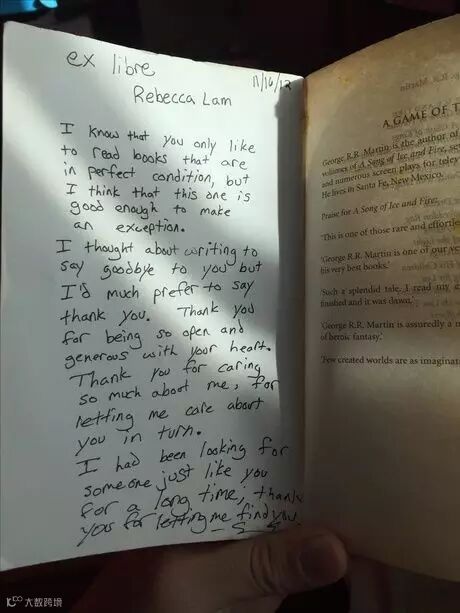 ex libre
11/16/12
Rebecca Lam
I know that you only like
to read books that are
in perfect condition, but
I think that this one is
good enough to make
an exception.
I thought about writing to
say goodbye to you but
I'd much prefer to say
thank you. Thank you
for being so open and
generous with your heart.
Thank you for caring
so much about me, for
letting me care about
you in turn.
I had been looking for
someone just like you
for a long time; thank
you for letting me find you.
A GAME OF T
George R.R. Martin is the author of
volumes of A Song of Ice and Fire, sev
and numerous screen plays for telev
He lives in Santa Fe, New Mexico.
Praise for A Song of Ice and Fire,
'This is one of those rare and effortle
'George R.R. Martin is one of our ve
his very best books.'
Such a splendid tale. I read my ey
finished and it was dawn.
'George R.R. Martin is assuredly a n
of heroic fantasy.'
'Few created worlds are as imaginat
大数跨境